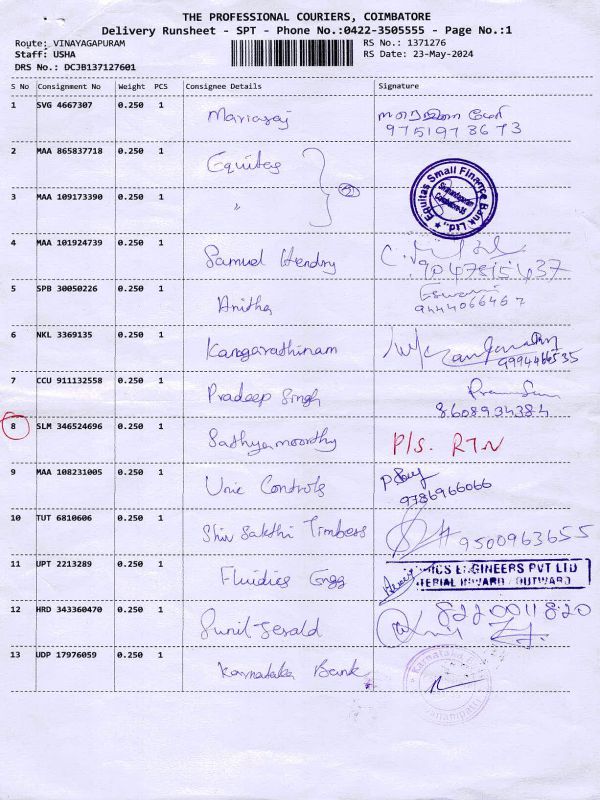 THE PROFESSIONAL COURIERS, COIMBATORE
Delivery Runsheet - SPT - Phone No.:0422-3505555 - Page No.:1
Route: VINAYAGAPURAM
RS No.: 1371276
Staff: USHA
RS Date: 23-May-2024
DRS No.: DCJB137127601
S No Consignment No Weight PCS Consignee Details Signature
1 SVG 4667307 0.250 1 Mariaraj
9751973673
2 MAA 865837718 0.250 1 Equitas
Equitas Small Finance Bank Ltd.,
3 MAA 109173390 0.250 1 "
4 MAA 101924739 0.250 1 Samuel Hendry
9047815437
5 SPB 30050226 0.250 1 Anitha Eswari
9444066467
6 NKL 3369135 0.250 1 Kangarathinam
9994466535
7 CCU 911132558 0.250 1 Pradeep Singh
8608934384
8 SLM 346524696 0.250 1 Sathyamoorthy P/S. RTN
9 MAA 108231005 0.250 1 Unic Controls
9786966066
10 TUT 6810606 0.250 1 Shiv Sakthi Timbers 9500963655
11 UPT 2213289 0.250 1 Fluidics Engg
ICS ENGINEERS PVT LTD
TERIAL INWARD / OUTWARD
12 HRD 343360470 0.250 1 Sunil Jerald 8220011820
13 UDP 17976059 0.250 1 Karnataka Bank
Karnataka